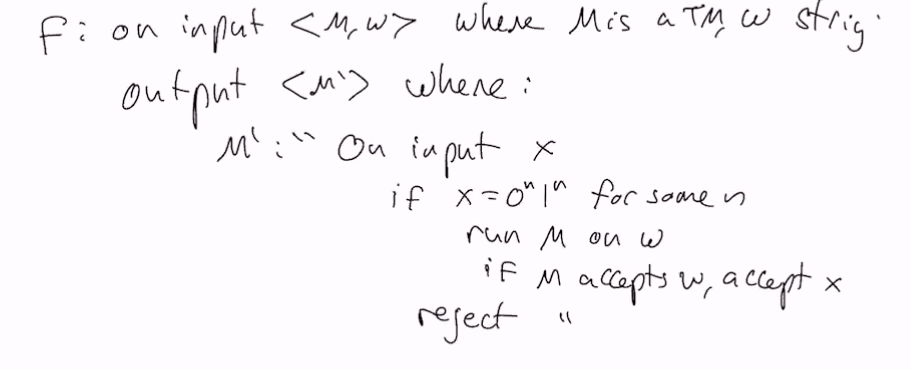 f: on input <M,w> where M is a TM, w strig.
output <M'> where:
M': " On input x
if x = 0ⁿ1ⁿ for some n
run M on w
if M accepts w, accept x
reject "